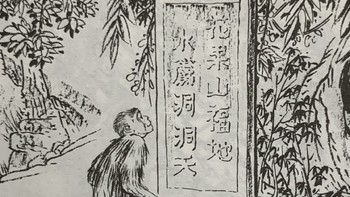 花果山福地
水簾洞洞天